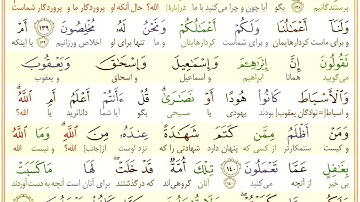 پرستندگانیم بگو آیا چون و چرا می‌کنید با ما (درباره) الله؟ حال آنکه او پروردگار ما و پروردگار شماست
وَلَنَآ أَعْمَٰلُنَا وَلَكُمْ أَعْمَٰلُكُمْ وَنَحْنُ لَهُۥ مُخْلِصُونَ ١٣٩ أَمْ
و برای ماست کردارهایمان و برای شماست کردارهایتان و ما تنها برای او اخلاص ورزانیم یا اینکه
تَقُولُونَ إِنَّ إِبْرَٰهِـۧمَ وَإِسْمَٰعِيلَ وَإِسْحَٰقَ وَيَعْقُوبَ
می‌گویید همانا ابراهیم و اسماعیل و اسحاق و یعقوب
وَٱلْأَسْبَاطَ كَانُوا۟ هُودًا أَوْ نَصَٰرَىٰ ۗ قُلْ ءَأَنتُمْ أَعْلَمُ أَمِ ٱللَّهُ ۗ
و اسباط [=نوادگان یعقوب] بودند یهودی یا مسیحی بگو آیا شما داناترید یا الله؟
وَمَنْ أَظْلَمُ مِمَّن كَتَمَ شَهَٰدَةً عِندَهُۥ مِنَ ٱللَّهِ ۗ وَمَا ٱللَّهُ
و کیست ستمکارتر از کسی که پنهان دارد شهادتی را که نزد اوست از [جانب] الله؟ و نیست الله
بِغَٰفِلٍ عَمَّا تَعْمَلُونَ ١٤٠ تِلْكَ أُمَّةٌ قَدْ خَلَتْ ۖ لَهَا مَا كَسَبَتْ
بی خبر از آنچه می‌کنید آنان گروهی‌اند که درگذشتند برای آنان است آنچه به دست آوردند